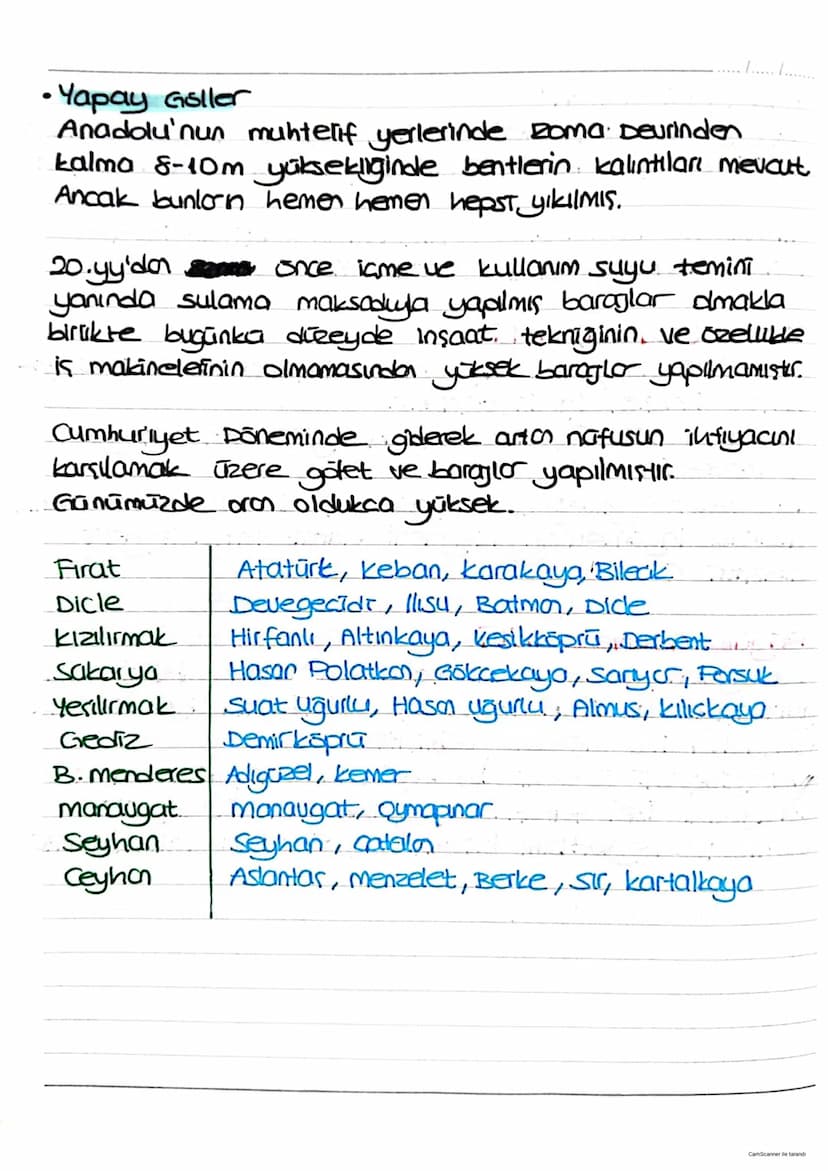 ...../...../......
• Yapay Göller
Anadolu'nun muhtelif yerlerinde Roma Devrinden
kalma 8-10m yüksekliğinde bentlerin kalıntıları mevcut.
Ancak bunların hemen hemen hepsi yıkılmış.
20.yy'dan önce içme ve kullanım suyu temini
yanında sulama maksadıyla yapılmış barajlar olmakla
birlikte bugünkü düzeyde inşaat tekniğinin ve özellikle
iş makinelerinin olmamasından yüksek barajlar yapılmamıştır.
Cumhuriyet Döneminde giderek artan nüfusun ihtiyacını
karşılamak üzere gölet ve barajlar yapılmıştır.
Günümüzde oran oldukca yüksek.
Fırat Atatürk, Keban, Karakaya, Bilecik
Dicle Devegecidi, Ilısu, Batman, Dicle
Kızılırmak Hirfanlı, Altınkaya, Kesikköprü, Derbent
Sakarya Hasan Polatkan, Gökcekaya, Sarıyar, Porsuk
Yeşilırmak Suat Uğurlu, Hasan Uğurlu, Almus, Kılıckaya
Gediz Demirköprü
B. menderes Adıgüzel, Kemer
manavgat manavgat, Oymapınar
Seyhan Seyhan, Catalan
Ceyhan Aslantas, menzelet, Berke, Sır, Kartalkaya
CamScanner ile tarandı